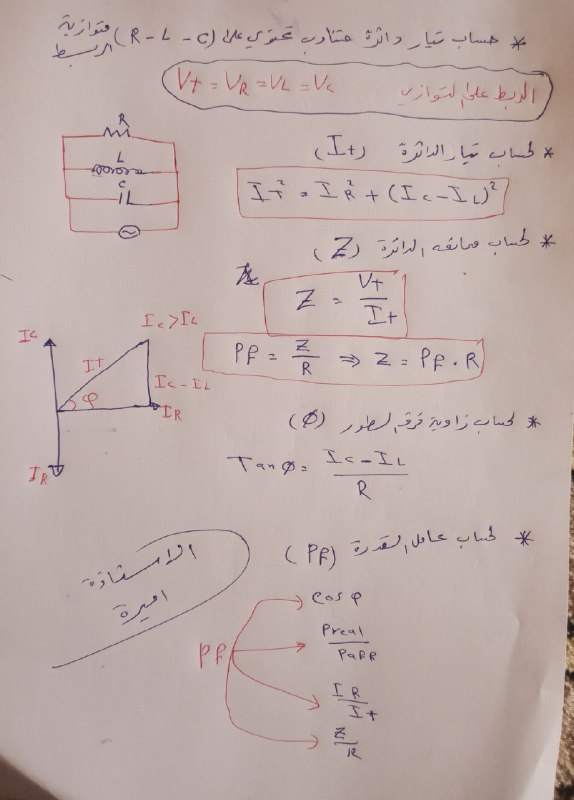 * حساب تيار دائرة متناوب تحتوي على (R - L - C) متوازية الربط
الربط على التوازي Vt = VR = VL = Vc
* لحساب تيار الدائرة (It)
It² = IR² + (Ic - IL)²
R
L
C
* لحساب ممانعه الدائرة (Z)
Z = Vt / It
Pf = Z / R ⇒ Z = Pf . R
Ic
It
φ
Ic - IL
IR
IR
* لحساب زاوية فرق الطور (Ø)
Tan Ø = Ic - IL / R
* لحساب عامل القدرة (Pf)
الاستاذة
اميرة
Pf
cos φ
Preal / Papp
IR / It
Z / R